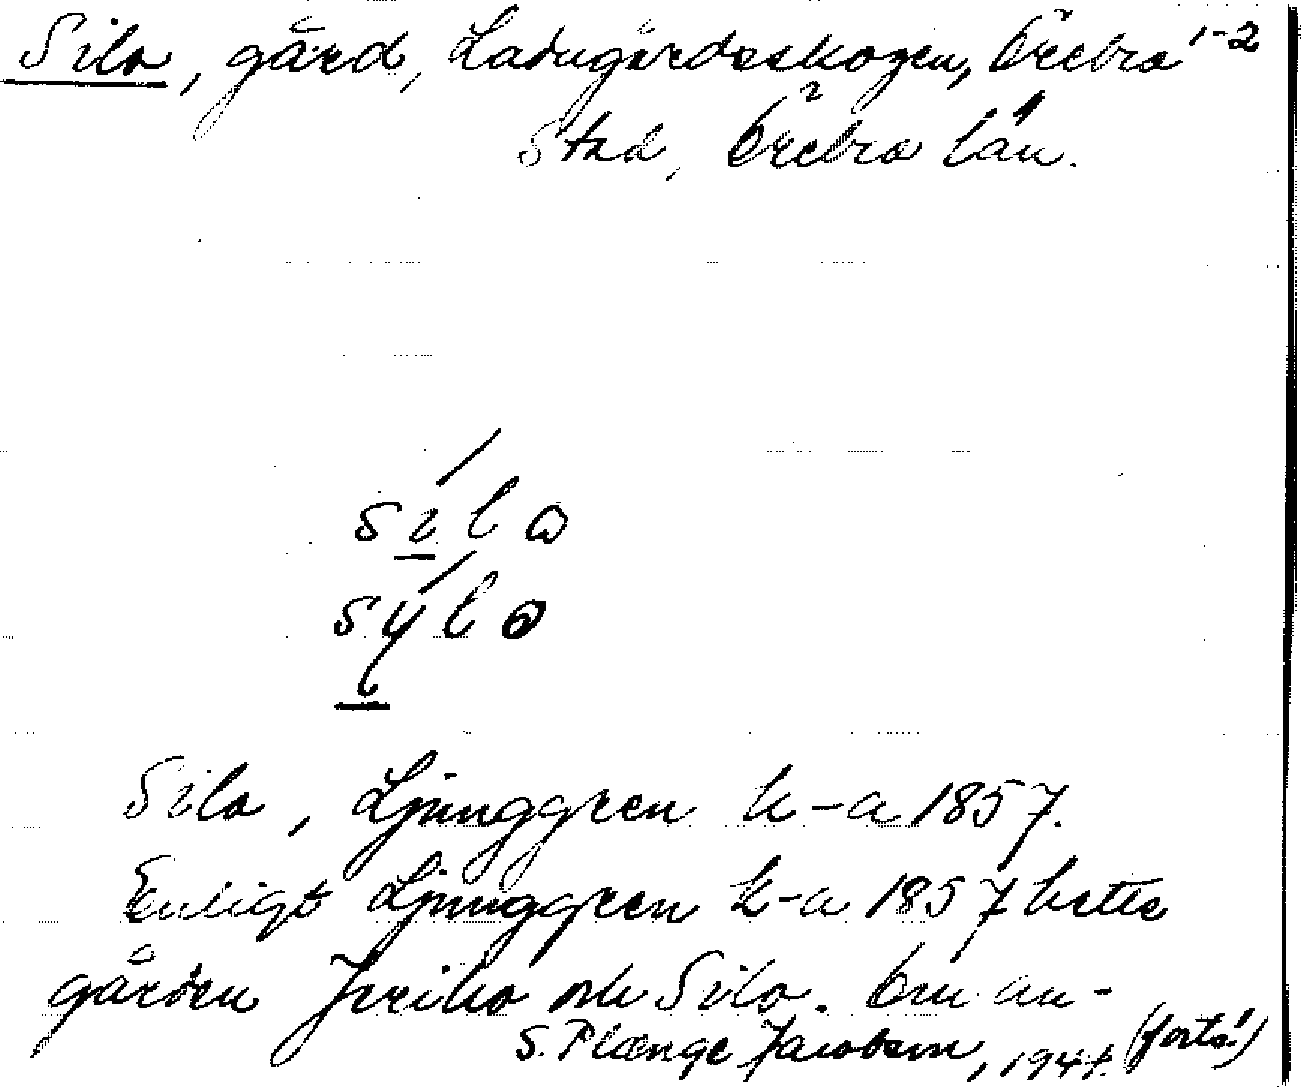 Silo, gård, Ladugårdsskogen, Örebro 1-2
Stad, Örebro län.
silo
sylo
Silo, Ljunggren k-a 1857.
Enligt Ljunggren k-a 1857 hette
gården Jeriko och Silo. Om an-
S. Plænge Jacobson, 1941. (forts!)